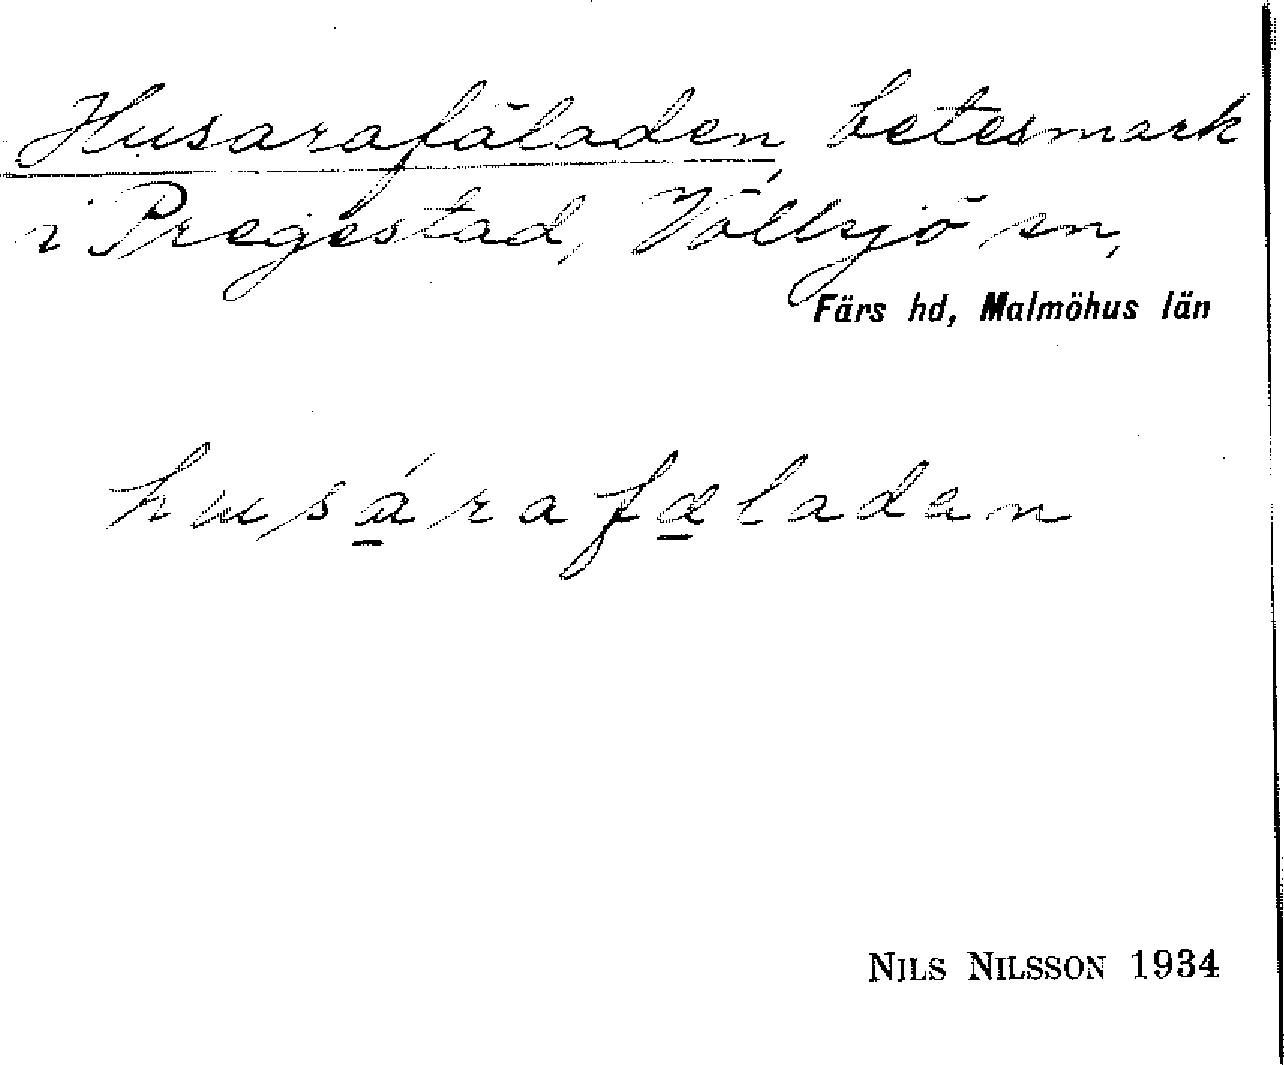 Husarafäladen, betesmark
i Pregestad, Vollsjö sn,
Färs hd, Malmöhus län
husárafæladen
NILS NILSSON 1934